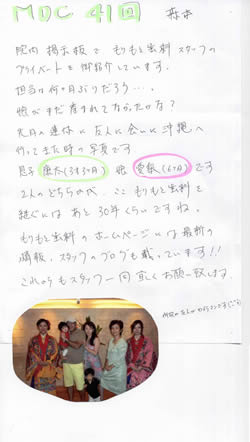 MDC 41回 森本
院内掲示板で もりもと歯科スタッフの
プライベートを御紹介しています。
担当は何ヶ月ぶりだろう・・・。
娘がまだ産まれてなかったかな?
先月の連休に友人に会いに沖縄へ
行ってきた時の写真です
息子 (3才3ヶ月) 娘 愛 (6ヶ月) です
2人のどちらの代 ここもりもと歯科を
継ぐには あと30年くらいですね。
もりもと歯科のホームページには最新の
情報、スタッフのブログも載っています!!
これからもスタッフ一同宜しくお願い致します。